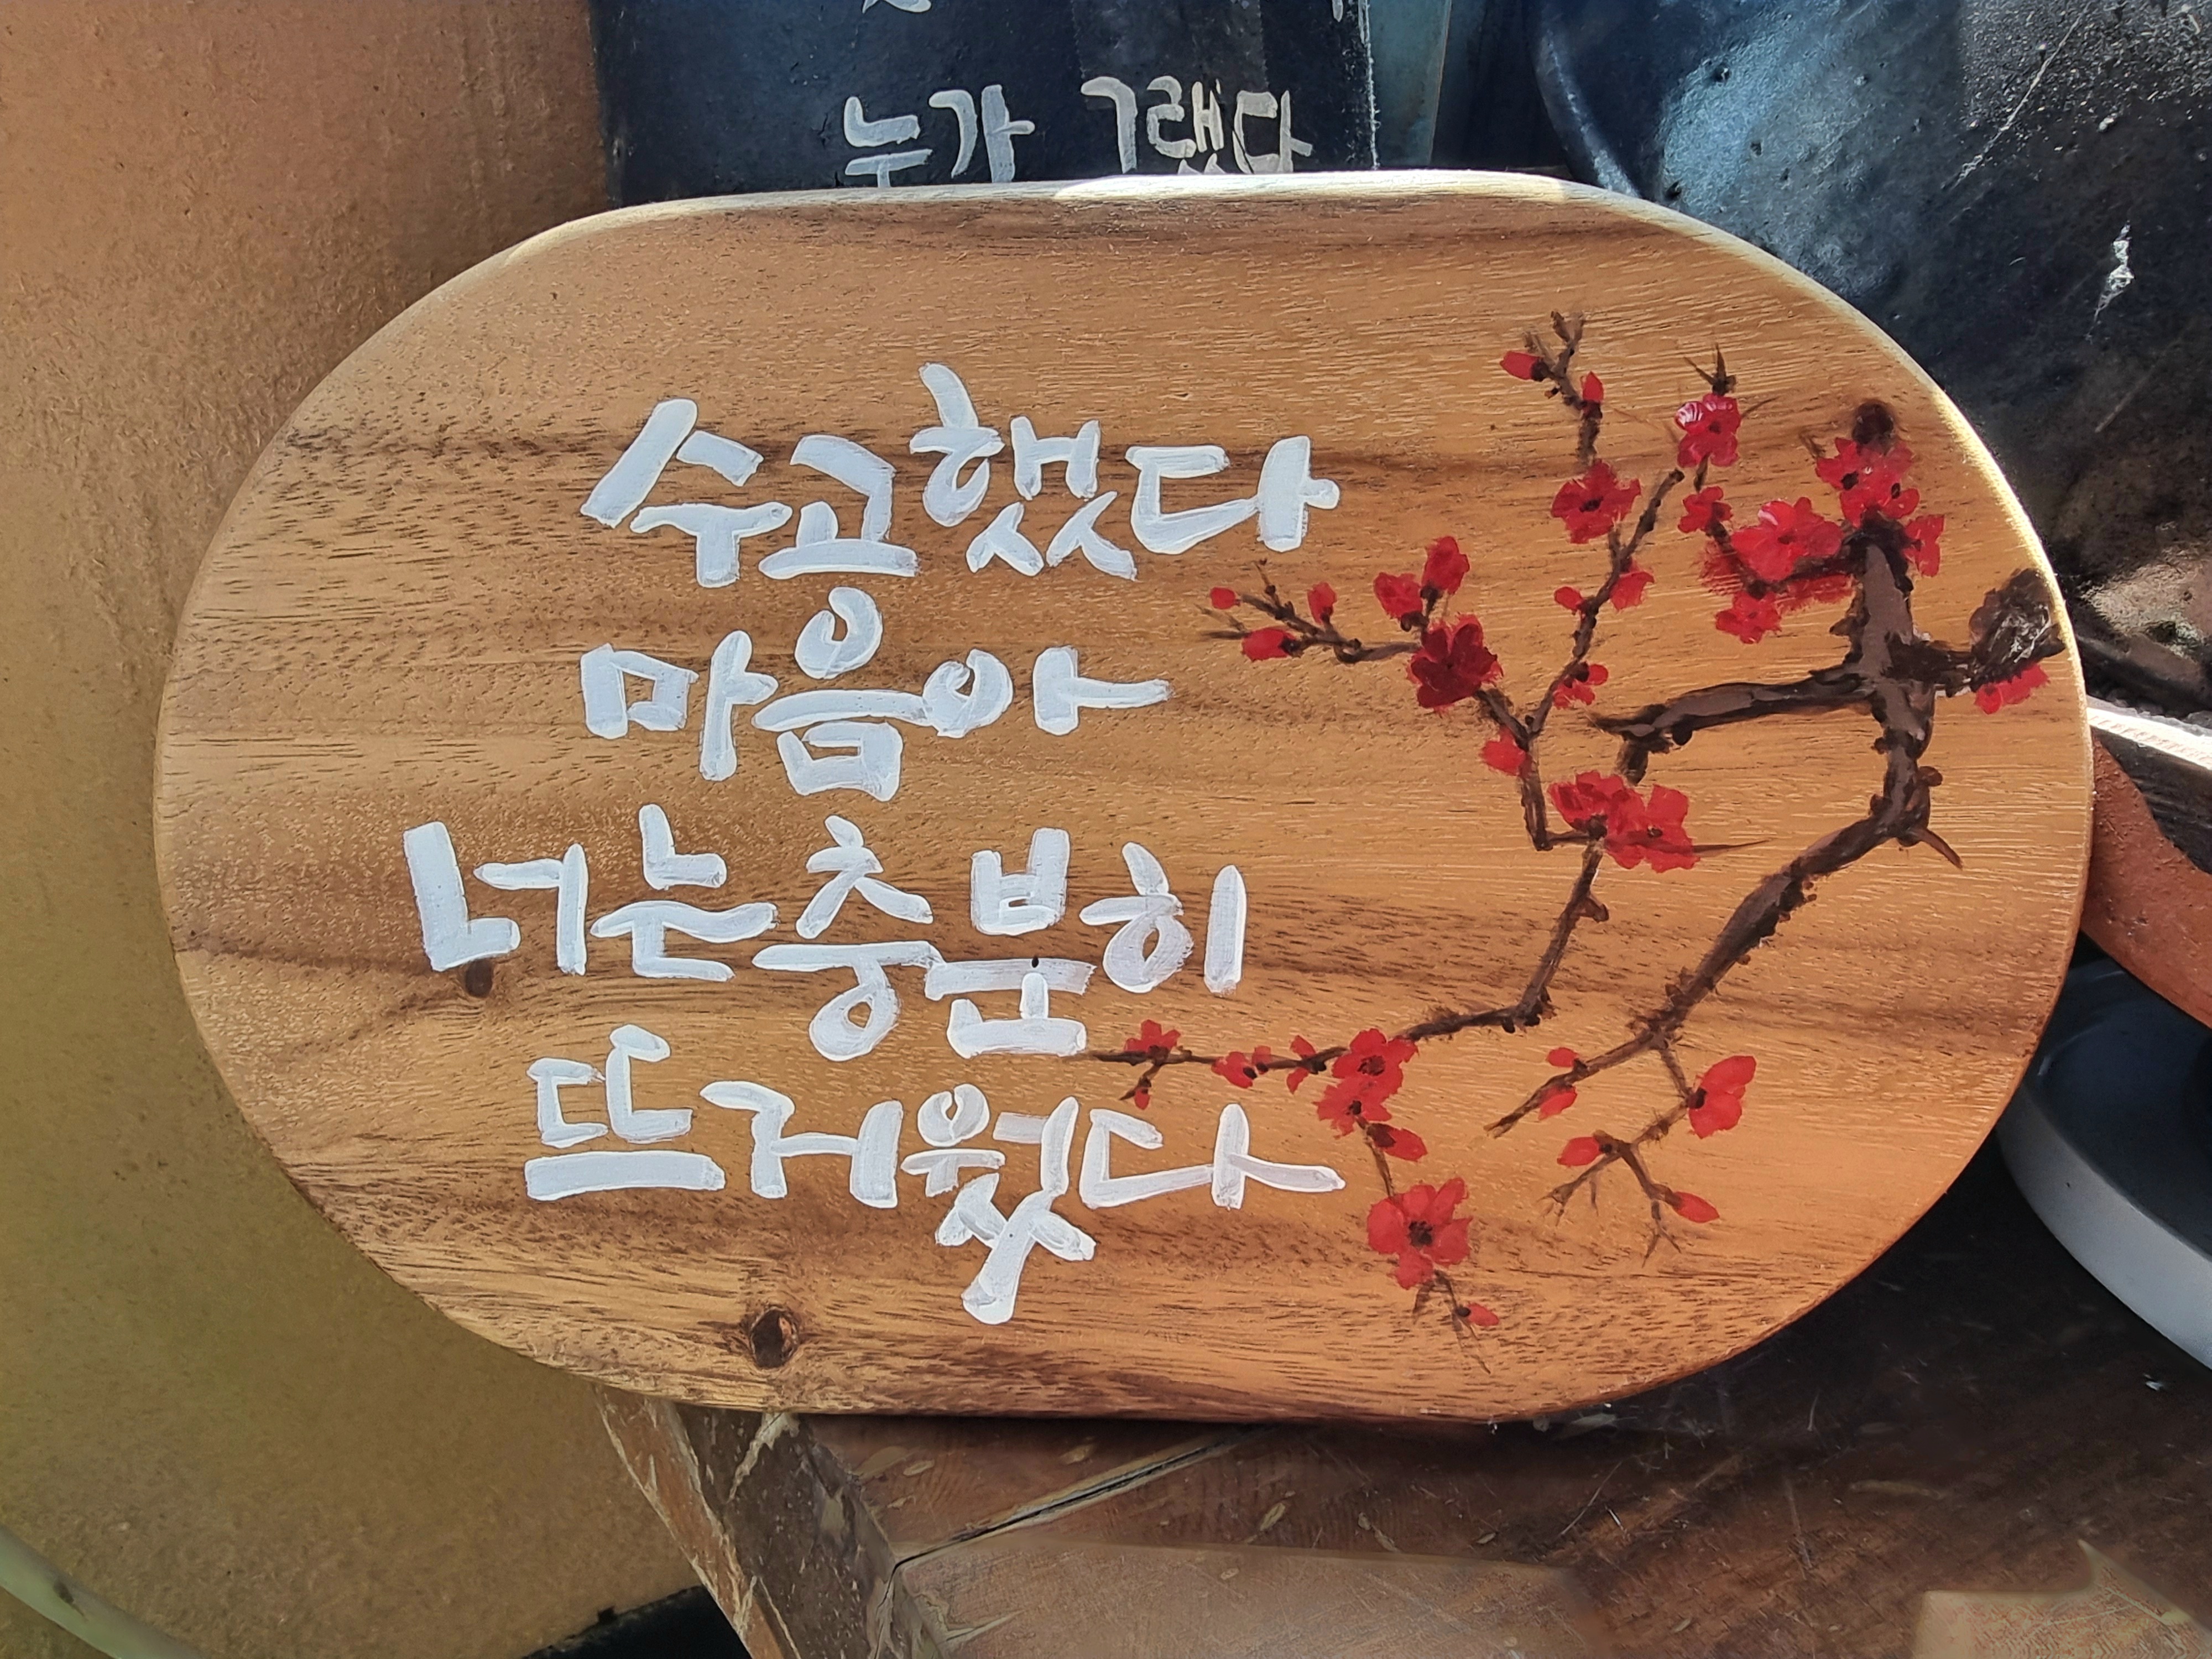 누가 그랬다
수고했다
마음아
너는충분히
뜨거웠다